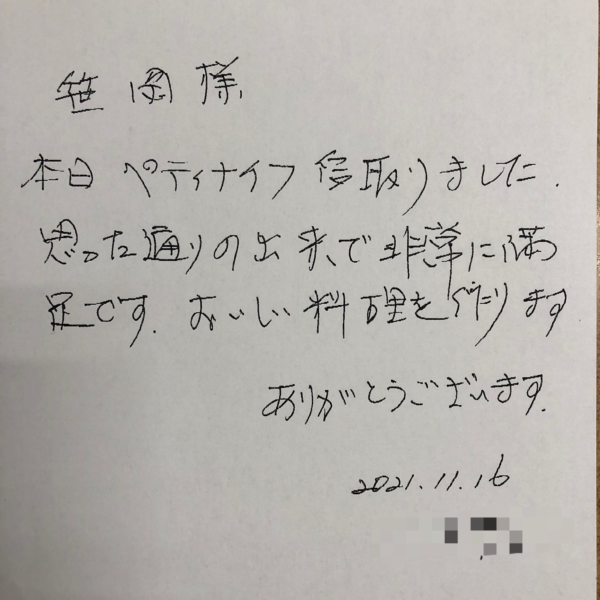 笹岡様
本日ペティナイフ受取りました.
思った通りの出来で非常に満
足です.おいしい料理を作ります
ありがとうございます.
2021.11.16